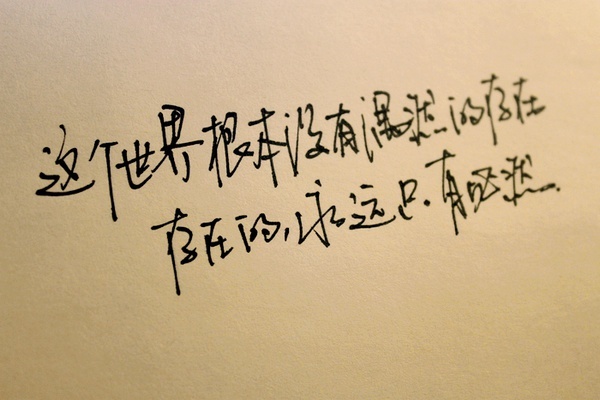 这个世界根本没有偶然的存在
存在的,永远只有必然.